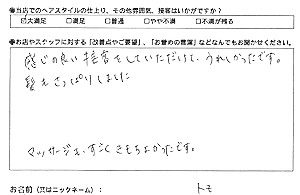 ●当店でのヘアスタイルの仕上り、その他雰囲気、接客はいかがですか？
☑大満足 □満足 □普通 □やや不満 □不満が残る
●お店やスタッフに対する「改善点やご要望」、「お誉めの言葉」などなんでもお聞かせください。
感じの良い接客をしていただけて、うれしかったです。
髪もさっぱりしました
マッサージも、すごくきもちよかったです。
お名前（又はニックネーム）： トモ